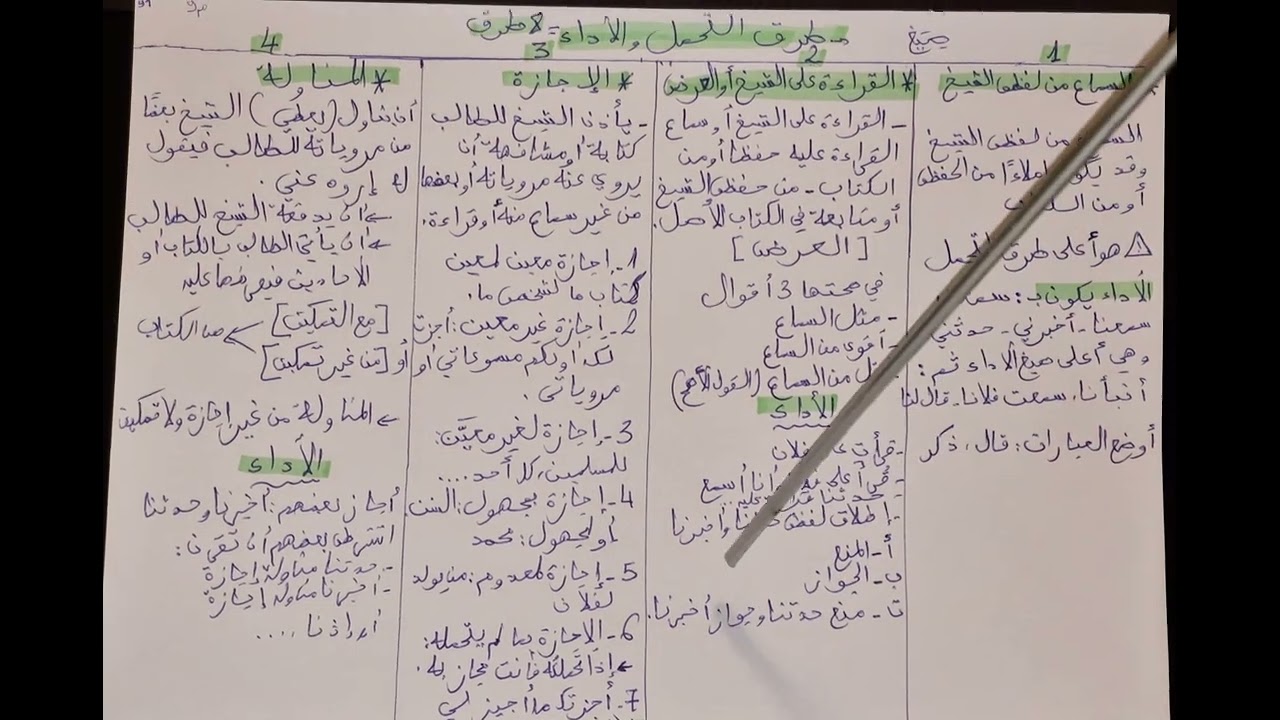 صيغ
طرق التحمل والأداء = 8 طرق
1
السماع من لفظ الشيخ
من لفظ الشيخ
وقد من الحفظ
أو من
هو أعلى طرق
الأداء يكون بـ:
سمعنا - أخبرني - حدثني
وهي أعلى صيغ الأداء ثم:
أنبأنا، سمعت فلانا، قال لنا
أوضع العبارات: قال، ذكر
2
* القراءة على الشيخ أو العرض
- القراءة على الشيخ أو سماع
القراءة عليه حفظا أو من
الكتاب - من حفظ الشيخ
أو متابعة في الكتاب الأصل.
[العرض]
في صحتها 3 أقوال
- مثل السماع
- أقوى من السماع
من السماع (القول الأصح)
الأداء
- قرأت فلان
- قرأ على وأنا أسمع
حدثنا عليه..
- إطلاق لفظ وأخبرنا
أ - المنع
ب - الجواز
ت - منع حدثنا وجواز أخبرنا.
3
* الإجازة
- يأذن الشيخ للطالب
كتابة أو مشافهة أن
يروي عنه مروياته أو بعضها
من غير سماع منه أو قراءة.
1- إجازة معين لمعين
كتاب ما لشخص ما.
2- إجازة غير معين: أجزت
لك أو لكم مسموعاتي أو
مروياتي.
3- إجازة لغير معيّن:
للمسلمين، كل أحد....
4- إجازة بمجهول: السنن
أو لمجهول: محمد
5- إجازة لمعدوم: من يولد
لفلان
6- الإجازة بما لم يتحمله:
← إذا تحملته فأنت مجاز به.
7- أجزتك ما أجيز لي
4
* المناولة
أن يناول (يعطي) الشيخ بعضًا
من مروياته للطالب فيقول
له إروه عني.
← أن يدفعه الشيخ للطالب
← أن يأتي الطالب بالكتاب أو
الأحاديث عليه
[مع التمكين]
أو [من غير تمكين] الكتاب
← المناولة من غير إجازة ولا تمكين
الأداء
أجاز بعضهم: أخبرنا وحدثنا
اشترط بعضهم أن تقترن:
- حدثنا مناولة إجازة
- أخبرنا مناولة إجازة
أو أذنا ....